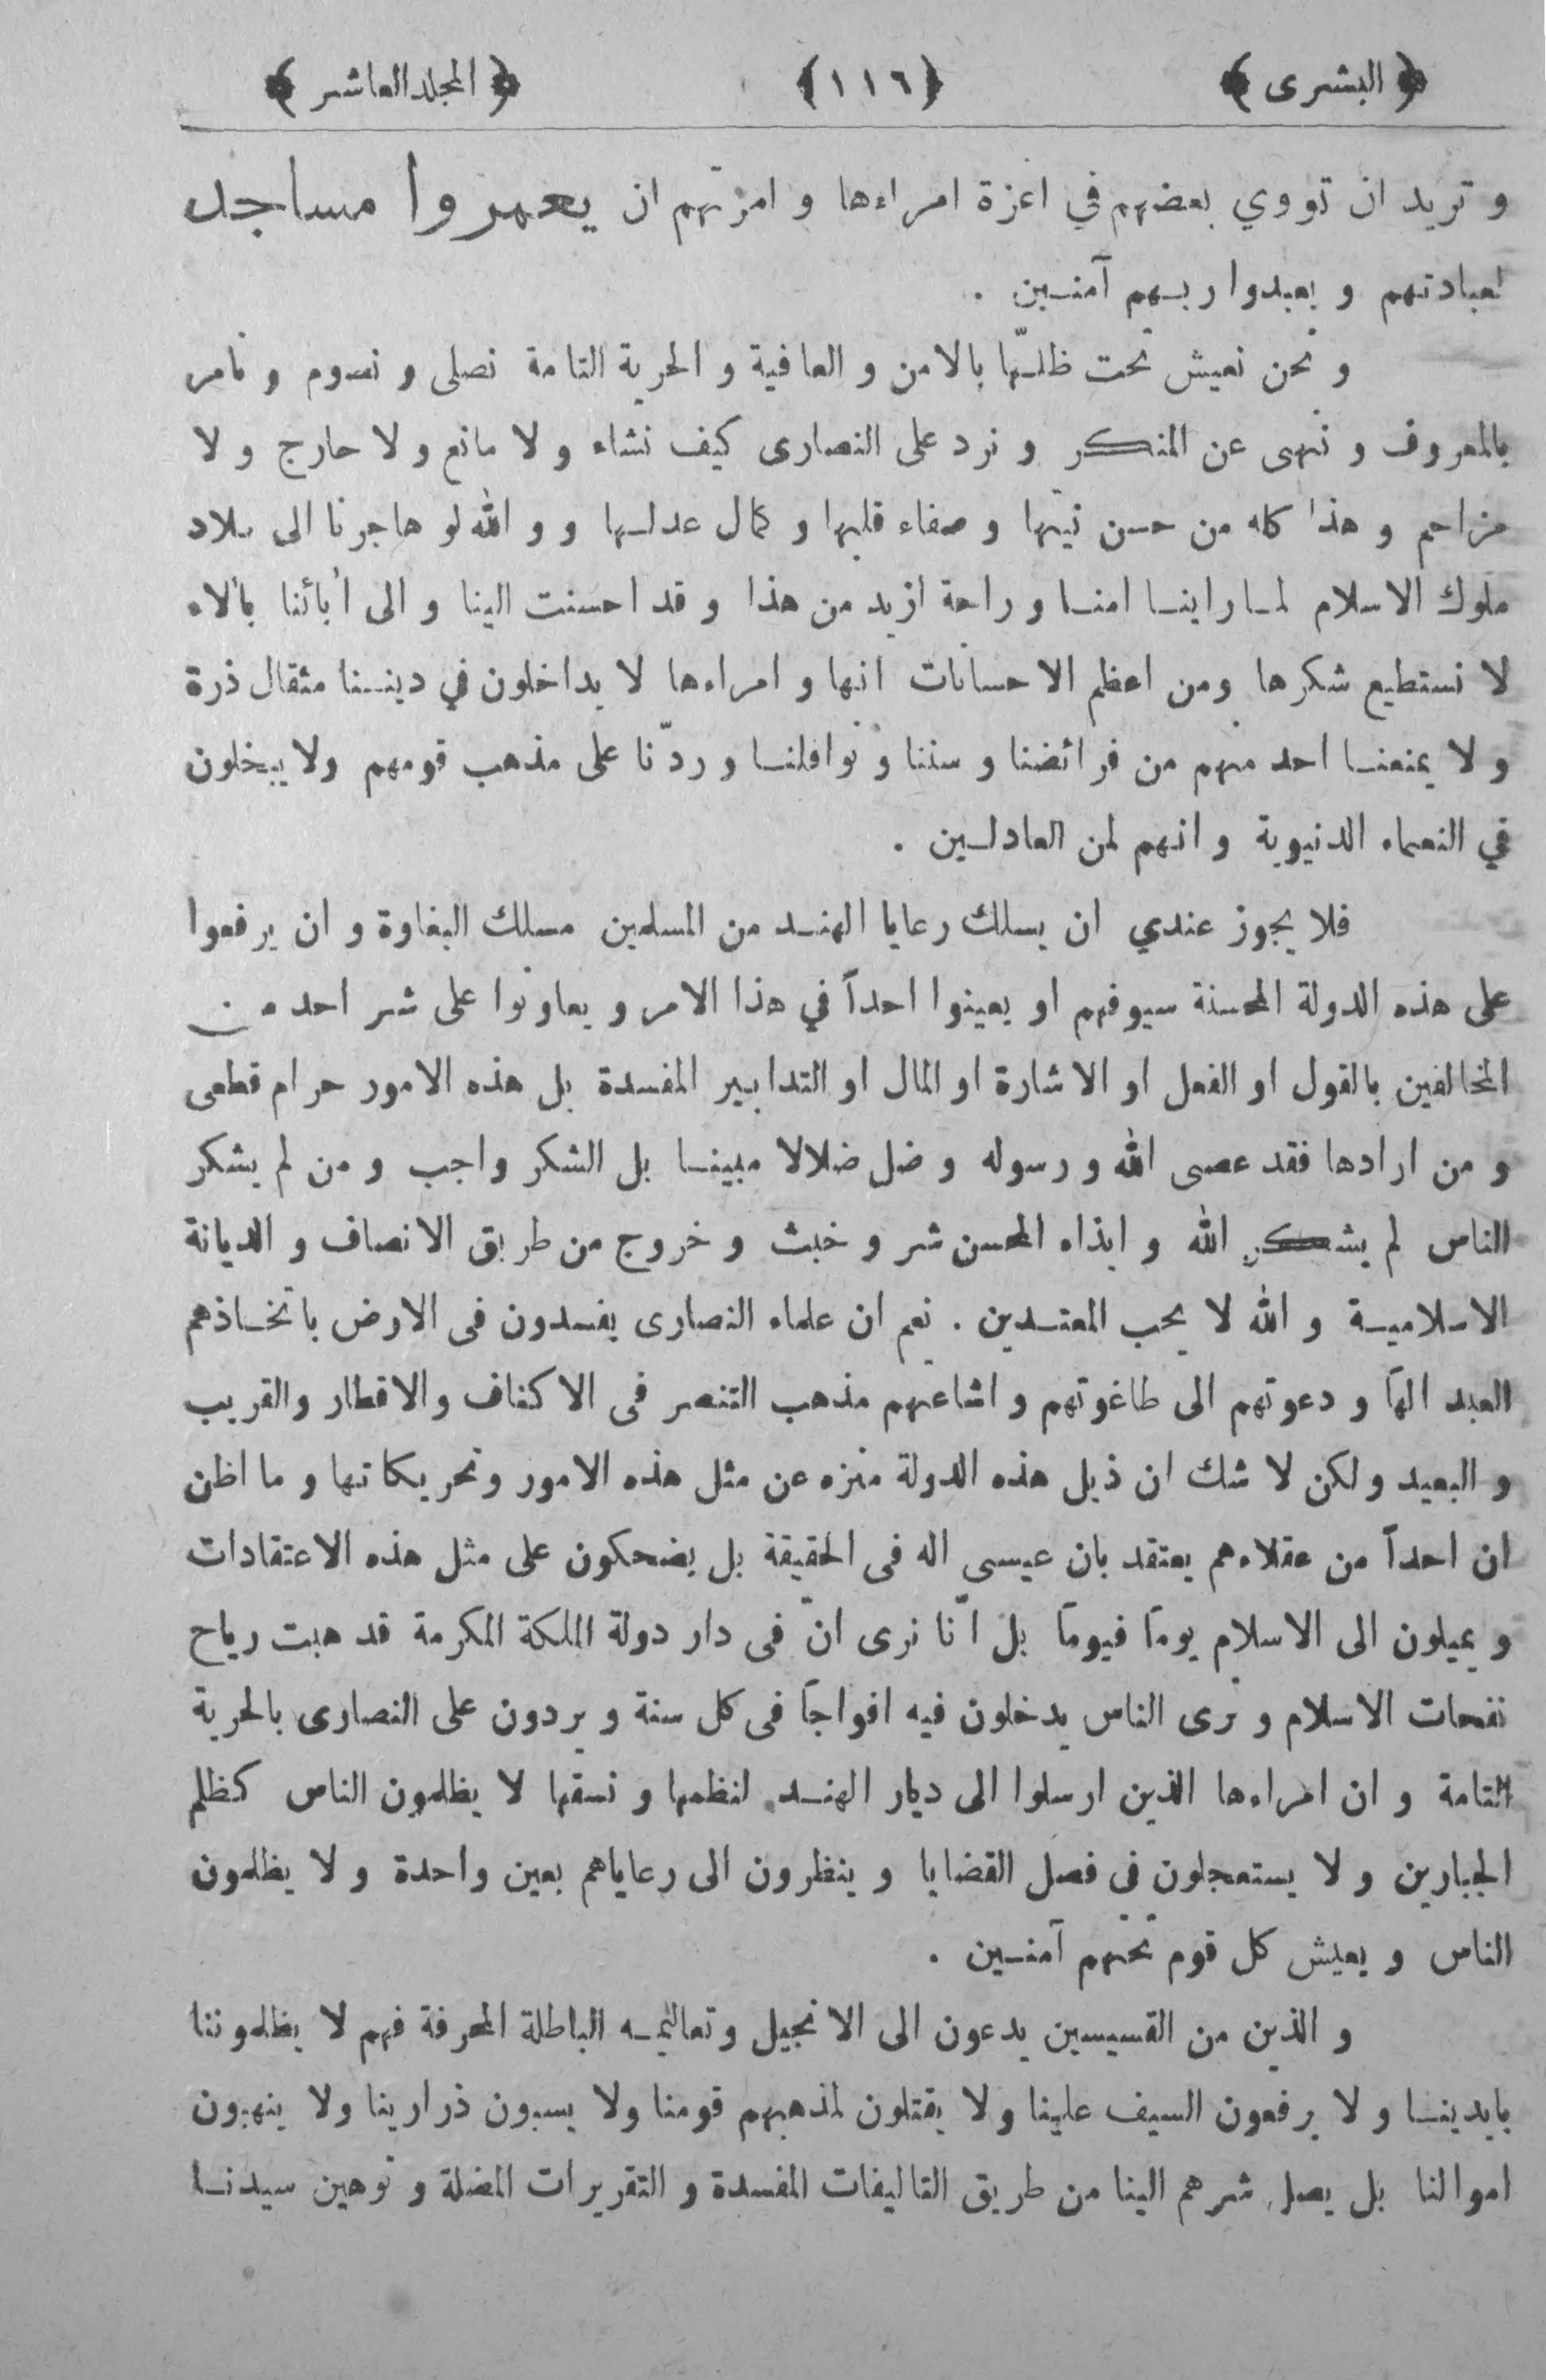 ﴿ البشرى ﴾ ﴿ ١١٦ ﴾ ﴿ المجلد العاشر ﴾
و تريد ان تووي بعضهم في اعزة امراءها و امرتهم ان يعمروا مساجد
لعبادتهم و يعبدوا ربهم آمنين .
و نحن نعيش تحت ظلّها بالامن و العافية و الحرية التامة نصلى و نصوم و نامر
بالمعروف و ننهى عن المنكر و نرد على النصارى كيف نشاء و لا مانع و لا حارج و لا
مزاحم و هذا كله من حسن نيتها و صفاء قلبها و كمال عدلها و و الله لو هاجرنا الى بلاد
ملوك الاسلام لما راينا امنا و راحة ازيد من هذا و قد احسنت الينا و الى أبائنا بألاء
لا نستطيع شكرها ومن اعظم الاحسانات انها و امراءها لا يداخلون في ديننا مثقال ذرة
و لا يمنعنا احد منهم من فرائضنا و سننا و نوافلنا و ردّنا على مذهب قومهم ولا يبخلون
في النعماء الدنيوية و انهم لمن العادلين .
فلا يجوز عندي ان يسلك رعايا الهند من المسلمين مسلك البغاوة و ان يرفعوا
على هذه الدولة المحسنة سيوفهم او يعينوا احداً في هذا الامر و يعاونوا على شر احد من
المخالفين بالقول او الفعل او الاشارة او المال او التدابير المفسدة بل هذه الامور حرام قطعى
و من ارادها فقد عصى الله و رسوله و ضل ضلالا مبينا بل الشكر واجب و من لم يشكر
الناس لم يشكر الله و ايذاء المحسن شر و خبث و خروج من طريق الانصاف و الديانة
الاسلامية و الله لا يحب المعتدين . نعم ان علماء النصارى يفسدون فى الارض باتخاذهم
العبد الهاً و دعوتهم الى طاغوتهم و اشاعتهم مذهب التنصر فى الاكناف والاقطار والقريب
و البعيد ولكن لا شك ان ذيل هذه الدولة منزه عن مثل هذه الامور وتحريكاتها و ما اظن
ان احداً من عقلاءهم يعتقد بان عيسى اله فى الحقيقة بل يضحكون على مثل هذه الاعتقادات
و يميلون الى الاسلام يوماً فيوماً بل انّا نرى انّ فى دار دولة الملكة المكرمة قد هبت رياح
نفحات الاسلام و نرى الناس يدخلون فيه افواجاً فى كل سنة و يردون على النصارى بالحرية
التامة و ان امراءها الذين ارسلوا الى ديار الهند لنظمها و نسقها لا يظلمون الناس كظلم
الجبارين و لا يستعجلون فى فصل القضايا و ينظرون الى رعاياهم بعين واحدة و لا يظلمون
الناس و يعيش كل قوم تحتهم آمنين .
و الذين من القسيسين يدعون الى الانجيل وتعاليمه الباطلة المحرفة فهم لا يظلموننا
بايدينا و لا يرفعون السيف علينا ولا يقتلون لمذهبهم قومنا ولا يسبون ذرارينا ولا ينهبون
اموالنا بل يصل شرهم الينا من طريق التاليفات المفسدة و التقريرات المضلة و توهين سيدنا